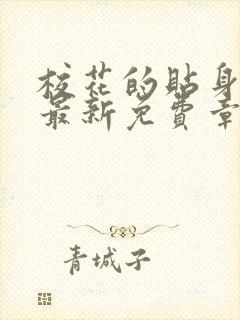 校花的貼身
最新免費章
青城子